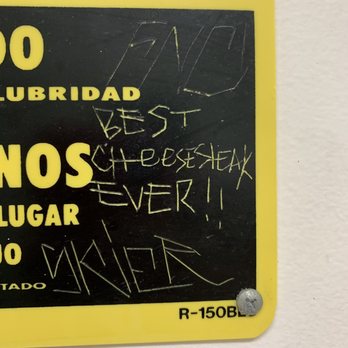 DO
LUBRIDAD
NOS
LUGAR
JO
TADO
BEST
CHEESESTEAK
EVER!!
R-150BL